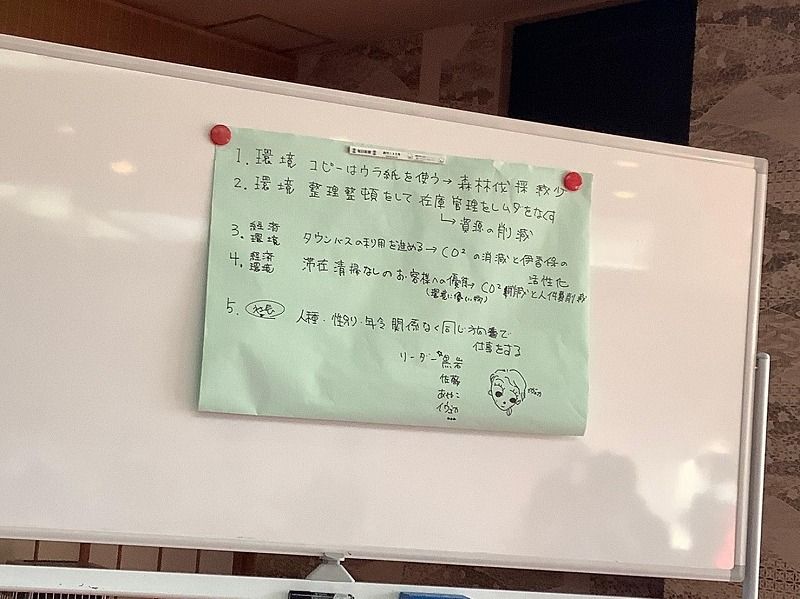 1. 環境 コピーはウラ紙を使う→森林伐採 減少
2. 環境 整理整頓をして在庫管理をしムダをなくす
↳資源の削減
3. 経済 環境 タウンバスの利用を進める→CO² の消減と伊香保の
活性化
4. 経済 環境 滞在清掃なしのお客様への優待→CO²削減と人件費削減
(環境に優しい物)
5. 社会 人種・性別・年令関係なく同じ方向で
仕事をする
リーダー 黒岩
佐藤
あやこ